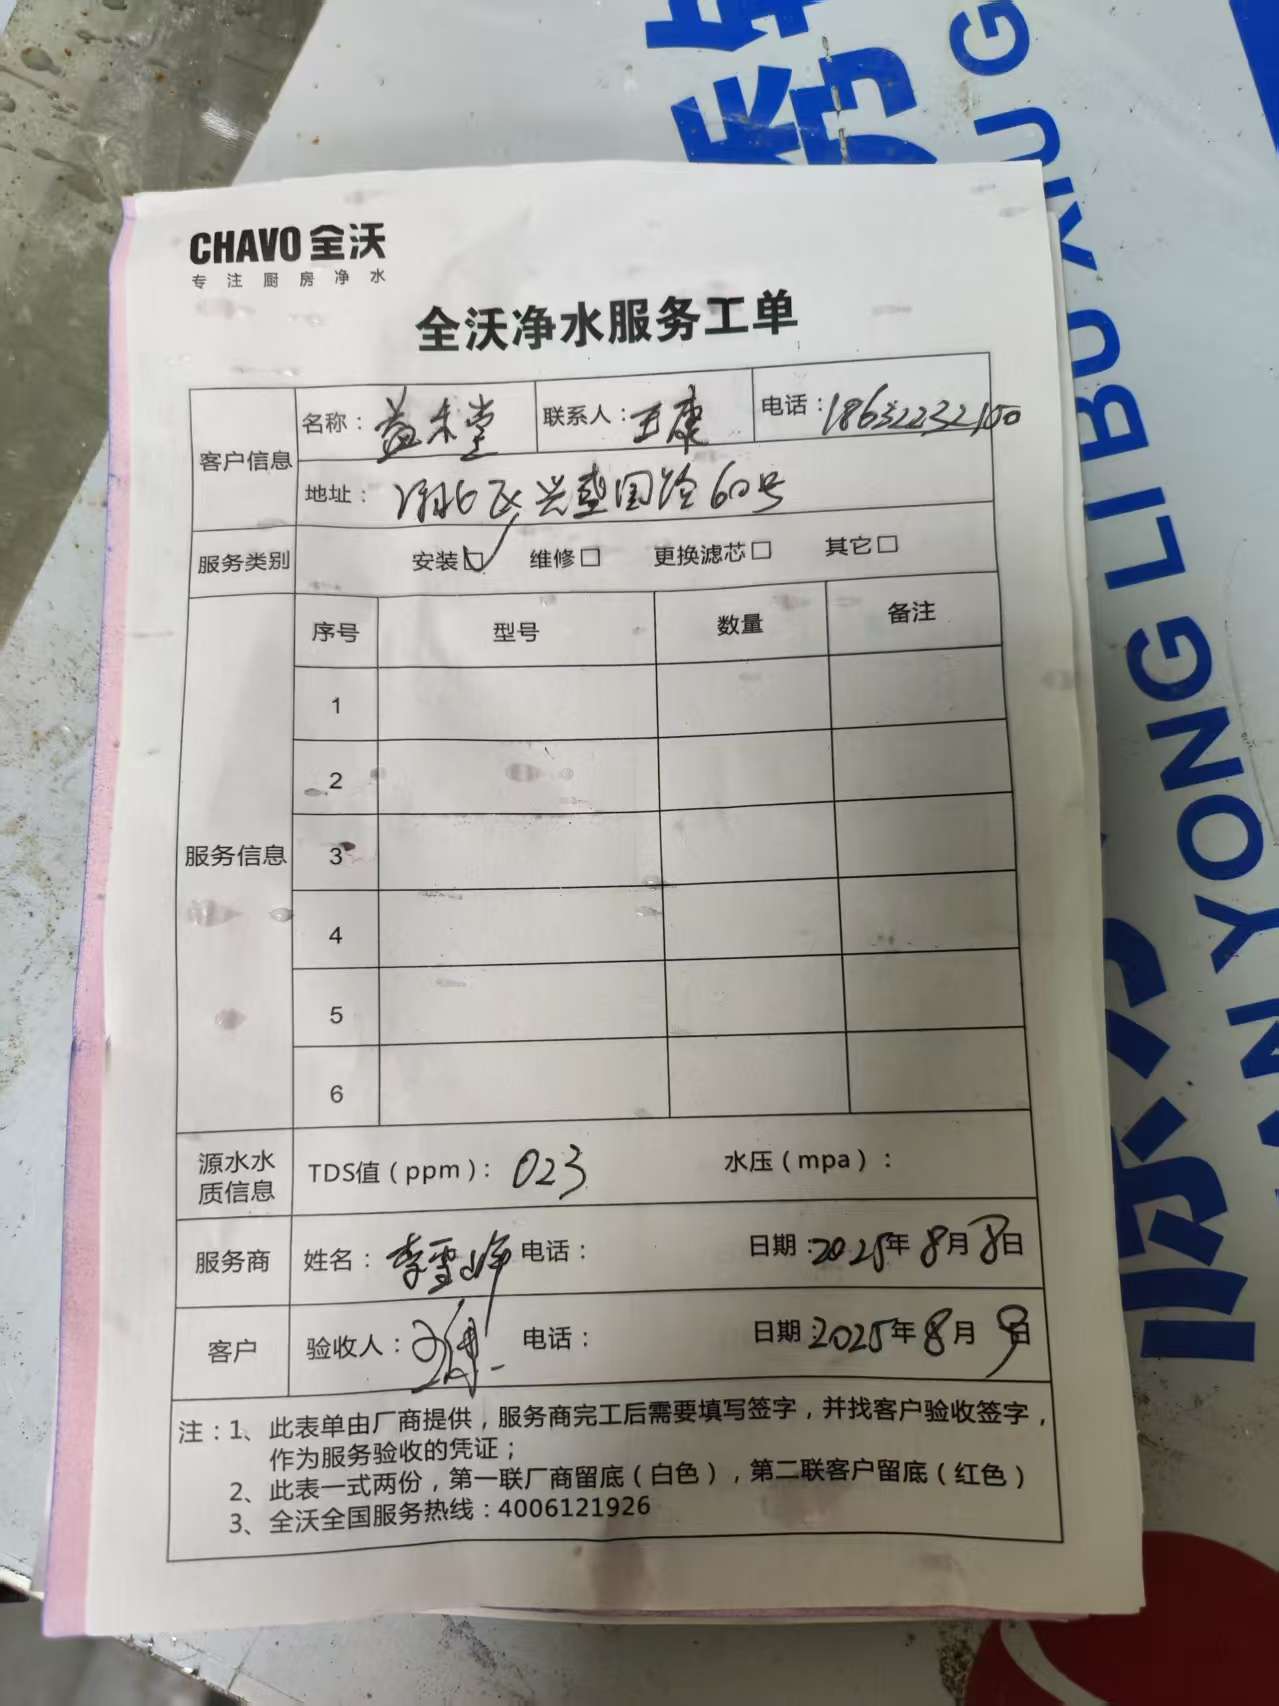 CHAVO 全沃
专注厨房净水
全沃净水服务工单
客户信息 名称：益禾堂 联系人：王康 电话：18632232100
地址： 兴盛国际60号
服务类别 安装☑ 维修□ 更换滤芯□ 其它□
服务信息 序号 型号 数量 备注
1
2
3
4
5
6
源水水质信息 TDS值（ppm）：023 水压（mpa）：
服务商 姓名：李雪峰 电话： 日期：2025年8月8日
客户 验收人： 电话： 日期：2025年8月 日
注：1、此表单由厂商提供，服务商完工后需要填写签字，并找客户验收签字，
作为服务验收的凭证；
2、此表一式两份，第一联厂商留底（白色），第二联客户留底（红色）
3、全沃全国服务热线：4006121926
LI BU XIU G
YONG